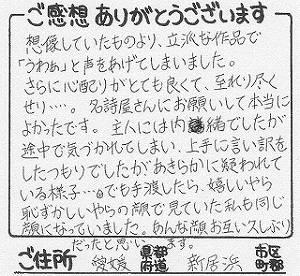 ご感想ありがとうございます
想像していたものより、立派な作品で
「うわぁ」と声をあげてしまいました。
さらに心配りがとても良くて、至れり尽く
せり…。名詩屋さんにお願いして本当に
よかったです。主人には内緒でしたが
途中で気づかれてしまい、上手に言い訳を
したつもりでしたがあきらかに疑われて
いる様子…。でも手渡したら、嬉しいやら
恥ずかしいやらの顔で見ていた私も同じ
顔になっていました。あんな顔お互い久しぶり
だったと思います。
ご住所 愛媛 都道府県 新居浜 市区町郡